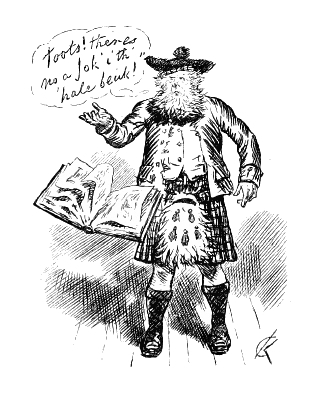 Toots! theres
no a Jok' i' th'
hale beuk!"